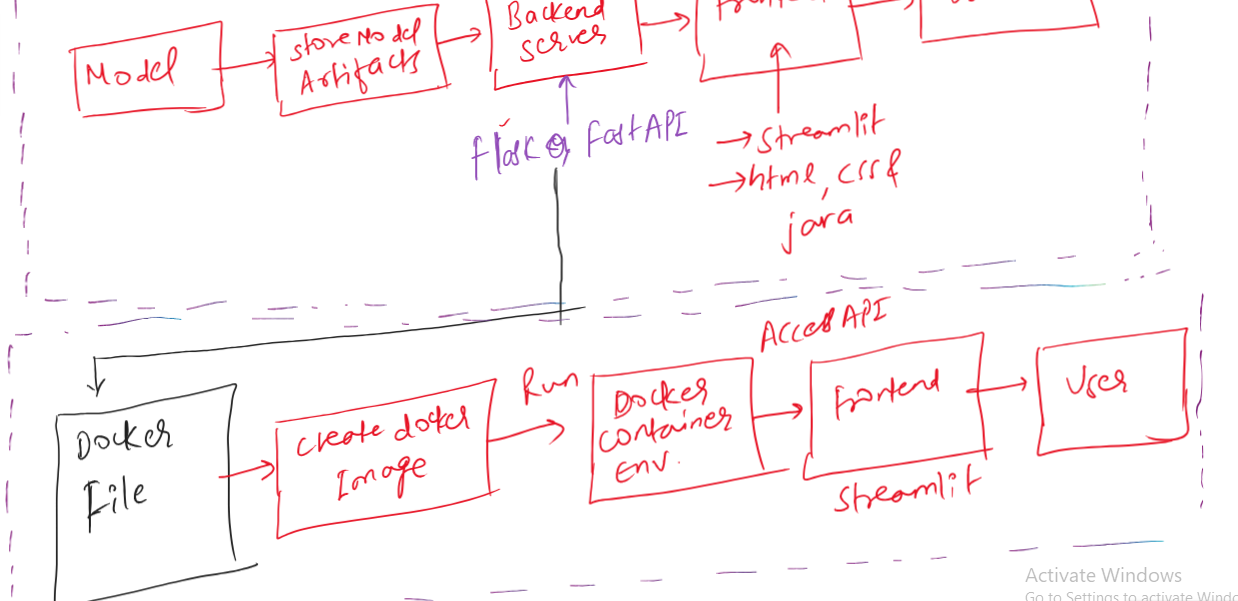 Backend
Server
Model
Store Model
Artifacts
Flask or FastAPI
→ Streamlit
→ html, css &
java
Access API
Docker
File
Create docker
Image
Run
Docker
Container
Env.
Frontend
User
Streamlit
Activate Windows
Go to Settings to activate Windo